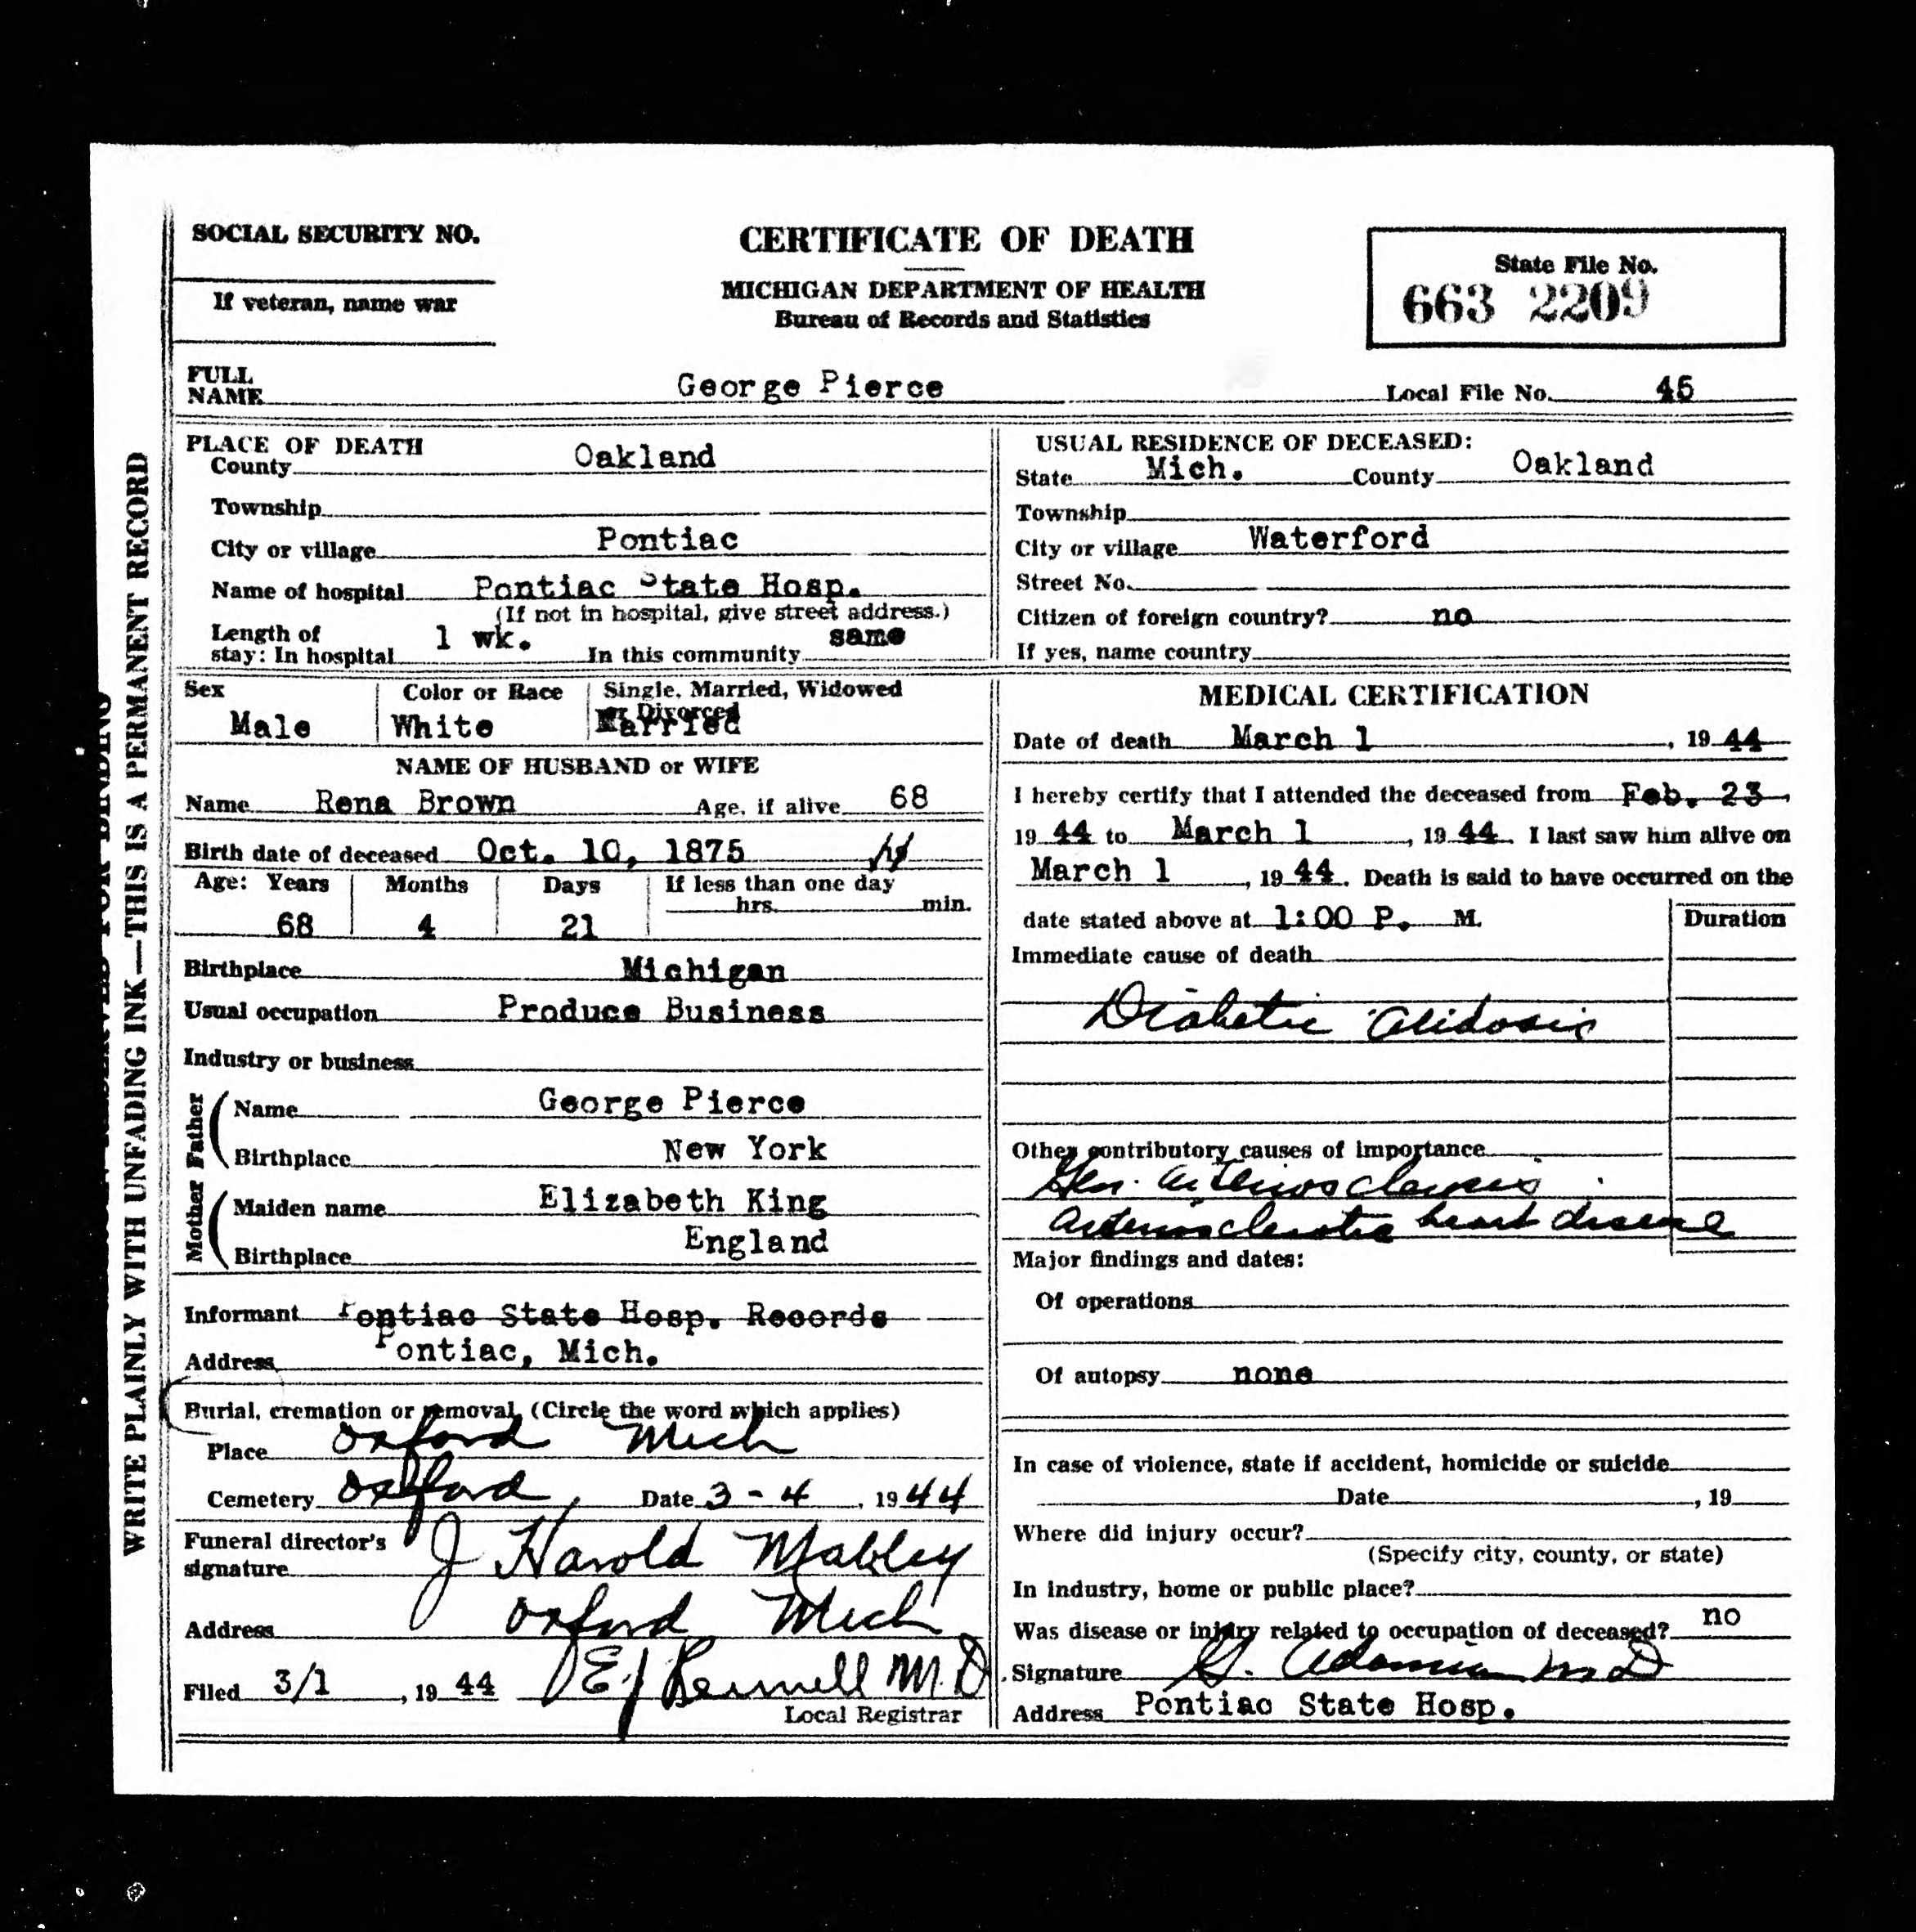 SOCIAL SECURITY NO.
If veteran, name war
CERTIFICATE OF DEATH
MICHIGAN DEPARTMENT OF HEALTH
Bureau of Records and Statistics
State File No.
663 2209
FULL NAME George Pierce
Local File No. 45
WRITE PLAINLY WITH UNFADING INK—THIS IS A PERMANENT RECORD
PLACE OF DEATH
County Oakland
Township
City or village Pontiac
Name of hospital Pontiac State Hosp.
(If not in hospital, give street address.)
Length of stay: In hospital 1 wk. In this community same
USUAL RESIDENCE OF DECEASED:
State Mich. County Oakland
Township
City or village Waterford
Street No.
Citizen of foreign country? no
If yes, name country
Sex Male
Color or Race White
Single, Married, Widowed or Divorced Married
NAME OF HUSBAND or WIFE
Name Rena Brown Age, if alive 68
Birth date of deceased Oct. 10, 1875
Age: Years Months Days If less than one day
hrs. min.
68 4 21
Birthplace Michigan
Usual occupation Produce Business
Industry or business
Father
Name George Pierce
Birthplace New York
Mother
Maiden name Elizabeth King
Birthplace England
Informant Pontiac State Hosp. Records
Address Pontiac, Mich.
Burial, cremation or removal (Circle the word which applies)
Place Oxford Mich
Cemetery Oxford, Date 3-4, 1944
Funeral director's signature J Harold Mabley
Address Oxford Mich
Filed 3/1, 19 44 M.D
Local Registrar
MEDICAL CERTIFICATION
Date of death March 1, 19 44
I hereby certify that I attended the deceased from Feb. 23,
19 44 to March 1, 19 44. I last saw him alive on
March 1, 19 44. Death is said to have occurred on the
date stated above at 1:00 P. M.
Duration
Immediate cause of death
Diabetic Acidosis
Other contributory causes of importance
Gen. arteriosclerosis
arteriosclerotic heart disease
Major findings and dates:
Of operations
Of autopsy none
In case of violence, state if accident, homicide or suicide
Date , 19
Where did injury occur?
(Specify city, county, or state)
In industry, home or public place?
Was disease or injury related to occupation of deceased? no
Signature M D
Address Pontiac State Hosp.